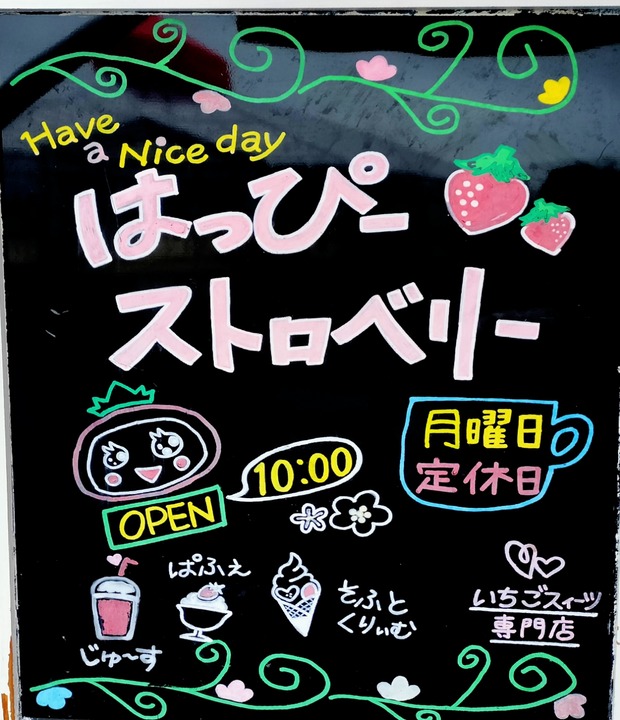 Have
a Nice day
はっぴー
ストロベリー
月曜日
定休日
10:00
OPEN
ぱふぇ
そふと
くりぃむ
じゅ〜す
いちごスィーツ
専門店